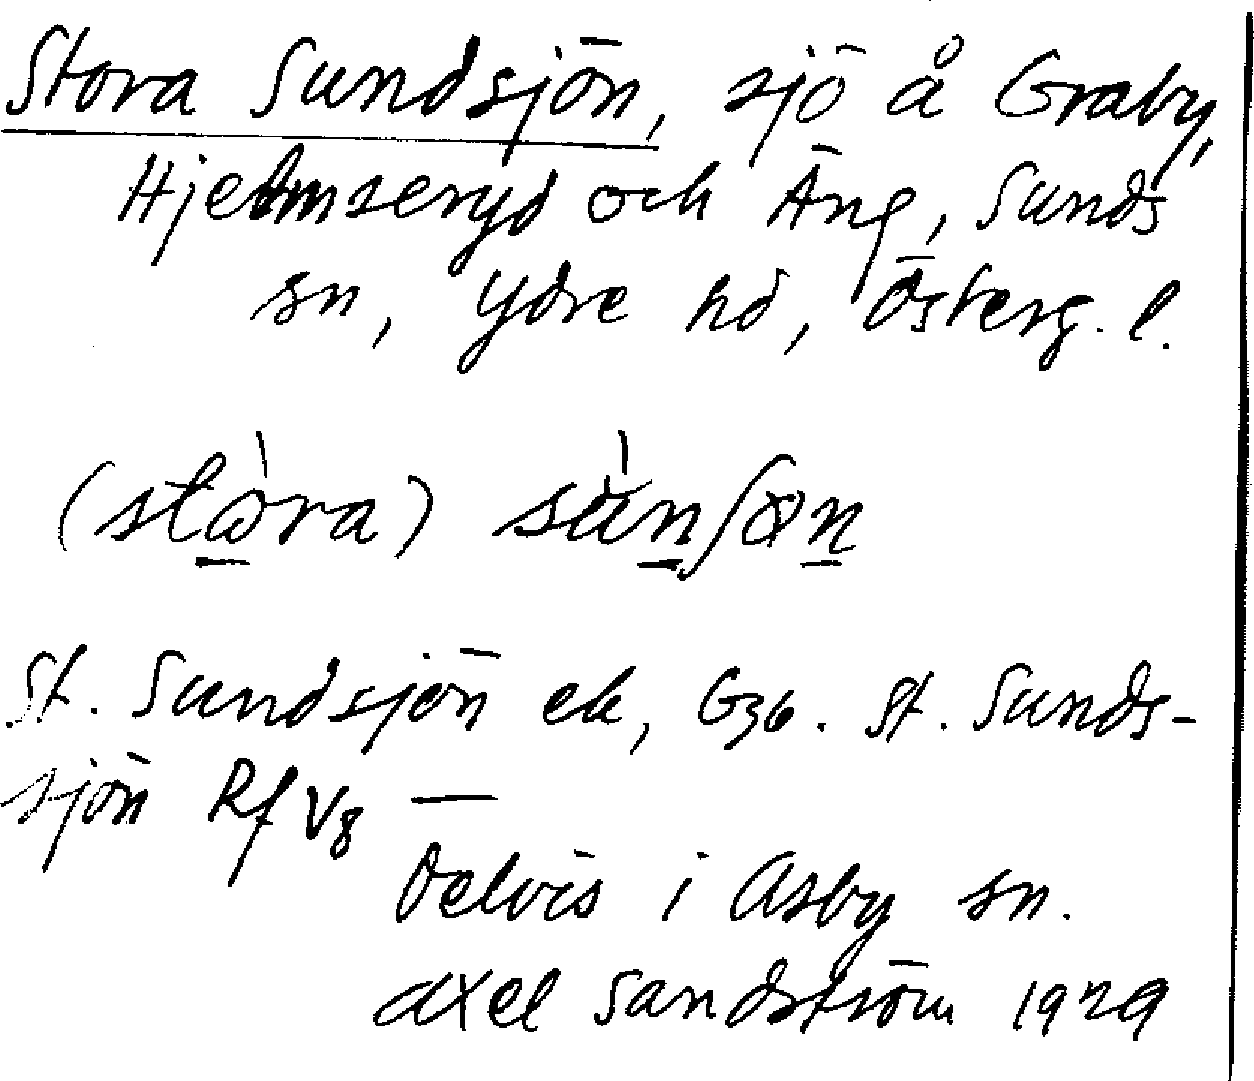 Stora Sundsjön, sjö å Graby,
Hjelmseryd och Äng, Sunds
sn, Ydre hd, Österg. l.
(stò̠ra) sùn̠ʃøn̠
St. Sundsjön ek, G36. St. Sunds-
sjön Rf V8 —
Delvis i Asby sn.
Axel Sandström 1929